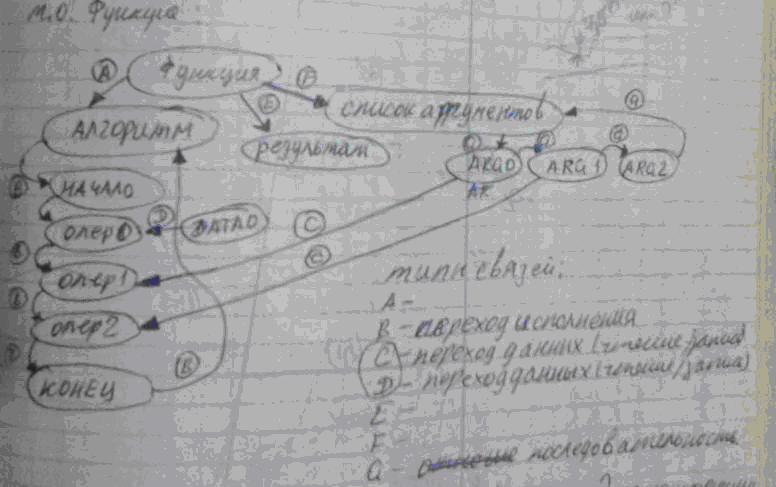 М.О. Функция
A
Функция
F
E
G
АЛГОРИТМ
список аргументов
результат
G
G
G
ARG0
ARG1
ARG2
AR
B
НАЧАЛО
опер0
D
DATA0
C
B
опер1
C
B
опер2
B
КОНЕЦ
B
типы связей:
A -
B - переход исполнения
C - переход данных (чтение/запись)
D - переход данных (чтение/запись)
E -
F -
G - последовательность